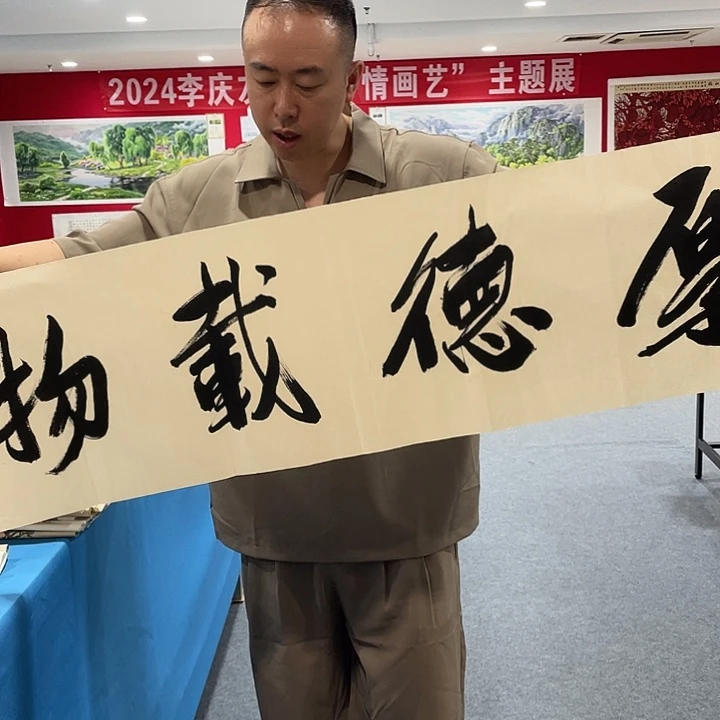 2024李庆
情画艺” 主题展
厚德載物